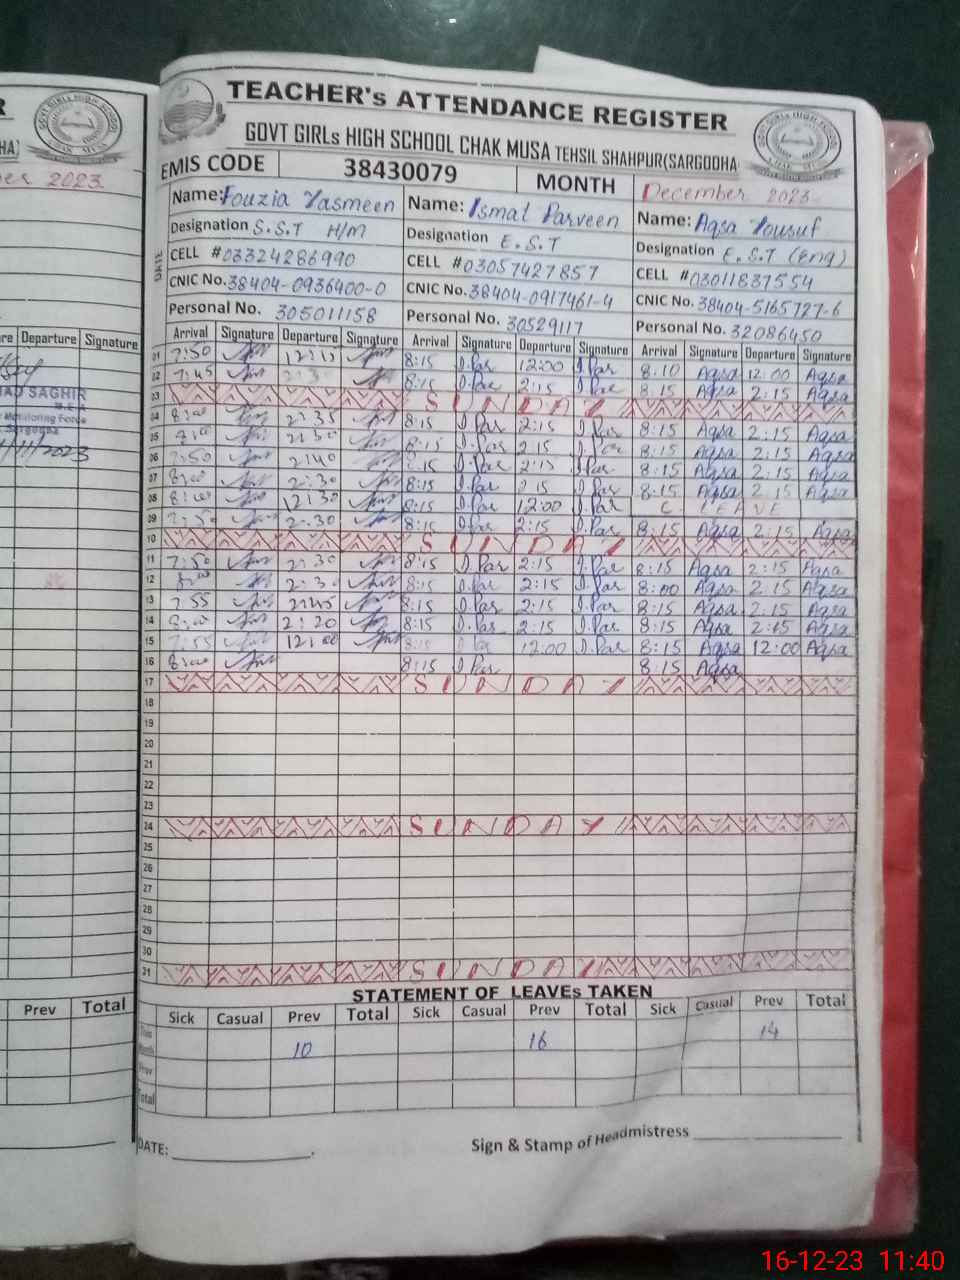 TEACHER's ATTENDANCE REGISTER
GOVT GIRLs HIGH SCHOOL CHAK MUSA TEHSIL SHAHPUR(SARGODHA
EMIS CODE 38430079 MONTH December 2023
Name: Fouzia Yasmeen Name: Ismat Parveen Name: Aqsa Yousuf
Designation S.S.T H/M Designation E.S.T Designation E.S.T (eng)
CELL #03324286990 CELL #03057427857 CELL #03011837554
CNIC No. 38404-0936400-0 CNIC No. 38404-0917461-4 CNIC No. 38404-5165727-6
Personal No. 305011158 Personal No. 30529117 Personal No. 32086450
DATE Arrival Signature Departure Signature Arrival Signature Departure Signature Arrival Signature Departure Signature
01 7:50 8:15 I.Par 12:00 I.Par 8:10 Aqsa 12:00 Aqsa
02 7:45 8:15 I.Par 2:15 I.Par 8:15 Aqsa 2:15 Aqsa
03 SUNDAY
04 8:00 2:35 8:15 I.Par 2:15 I.Par 8:15 Aqsa 2:15 Aqsa
05 2:30 8:15 I.Par 2:15 I.Par 8:15 Aqsa 2:15 Aqsa
06 7:50 2:40 I.Par 2:15 I.Par 8:15 Aqsa 2:15 Aqsa
07 8:00 2:30 8:15 I.Par 2:15 I.Par 8:15 Aqsa 2:15 Aqsa
08 8:00 12:30 8:15 I.Par 12:00 I.Par C. LEAVE
09 7:50 2:30 8:15 I.Par 2:15 I.Par 8:15 Aqsa 2:15 Aqsa
10 SUNDAY
11 7:50 2:30 8:15 I.Par 2:15 I.Par 8:15 Aqsa 2:15 Aqsa
12 8:00 2:30 8:15 I.Par 2:15 I.Par 8:00 Aqsa 2:15 Aqsa
13 7:55 2:45 8:15 I.Par 2:15 I.Par 8:15 Aqsa 2:15 Aqsa
14 8:00 2:20 8:15 I.Par 2:15 I.Par 8:15 Aqsa 2:15 Aqsa
15 7:55 12:00 8:15 I.Par 12:00 I.Par 8:15 Aqsa 12:00 Aqsa
16 8:00 8:15 I.Par 8:15 Aqsa
17 SUNDAY
18
19
20
21
22
23
24 SUNDAY
25
26
27
28
29
30
31 SUNDAY
STATEMENT OF LEAVEs TAKEN
Sick Casual Prev Total Sick Casual Prev Total Sick Casual Prev Total
This Month 10 16 14
Prev
Total
DATE: Sign & Stamp of Headmistress
Departure Signature
SAGHIR
Monitoring Force
Sargodha
2023
Prev Total
16-12-23 11:40